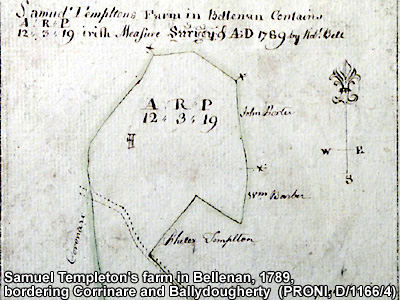 Samuel Templtons Farm in Bellenan Contains
A R P
12 : 3 : 19 irish Measure Survey'd A:D 1789 by Robt. Bell
A R P
12 : 3 : 19
John Porter
W E
S
Wm Barber
Corrinare
Pheler Templton
Samuel Templeton's farm in Bellenan, 1789,
bordering Corrinare and Ballydougherty (PRONI, D/1166/4)